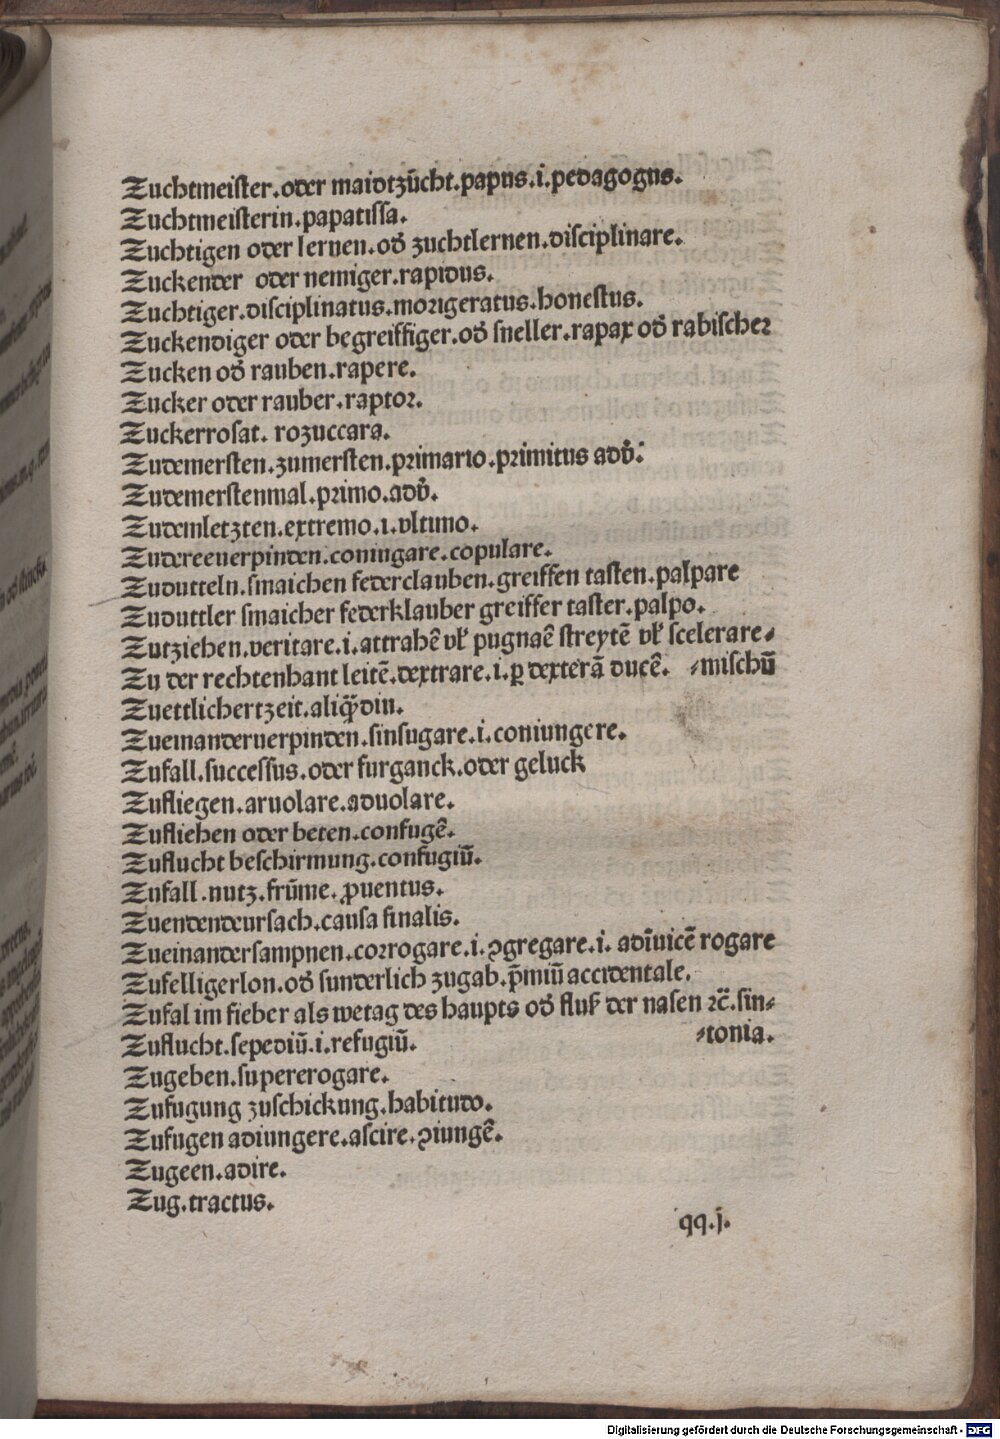 Zuchtmeister.oder maidtzücht.papus.i.pedagogus.
Zuchtmeisterin.papatissa.
Zuchtigen oder lernen.od̕ zuchtlernen.disciplinare.
Zuckender oder nemiger.rapidus.
Zuchtiger.disciplinatus.morigeratus.honestus.
Zuckendiger oder begreiffiger.od̕ sneller.rapax od̕ rabischer
Zucken od̕ rauben.rapere.
Zucker oder rauber.raptor.
Zuckerrosat. rozuccara.
Zudemersten.zumersten.primario.primitus adv̕.
Zudemerstenmal.primo.adv̕.
Zudemletzten.extremo.i.vltimo.
Zudereeuerpinden.coniugare.copulare.
Zudutteln.smaichen federclauben.greiffen tasten.palpare
Zuduttler smaicher federklauber greiffer taster.palpo.
Zutziehen.veritare.i.attrahē vl̕ pugnaē streytē vl̕ scelerare⸗
Zu der rechtenhant leitē.dextrare.i.ꝑ dexterā ducē. ⸗mischū
Zuettlichertzeit.aliq̄din.
Zueinanderuerpinden.sinsugare.i.coniungere.
Zufall.successus.oder furganck.oder geluck
Zufliegen.aruolare.aduolare.
Zufliehen oder beten.confugē.
Zuflucht beschirmung.confugiū.
Zufall.nutz.frūme.ꝓuentus.
Zuendendeursach.causa finalis.
Zueinandersampnen.corrogare.i.ꝯgregare.i. adīuicē rogare
Zufelligerlon.od̕ sunderlich zugab.p̄miū accidentale.
Zufal im fieber als wetag des haupts od̕ fluß der nasen ꝛc̄.sin⸗
Zuflucht.sepediū.i.refugiū. ⸗tonia.
Zugeben.supererogare.
Zufugung zuschickung.habitudo.
Zufugen adiungere.ascire.ꝯiungē.
Zugeen.adire.
Zug.tractus.
qq.j.
Digitalisierung gefördert durch die Deutsche Forschungsgemeinschaft - DFG